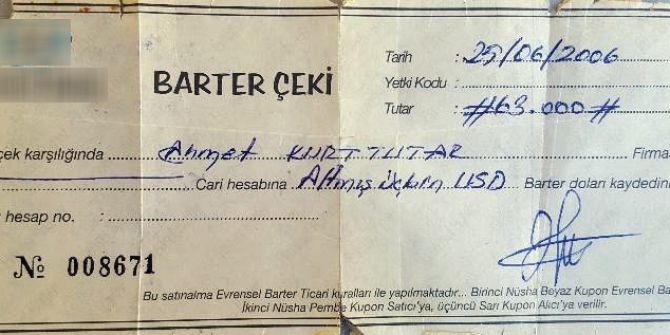 Tarih : 25/06/2006
BARTER ÇEKİ
Yetki Kodu :
Tutar : #63.000#
çek karşılığında Ahmet KURTTUTAR Firma
Cari hesabına Altmış üçbin USD Barter doları kaydedin
hesap no. :
№ 008671
Bu satınalma Evrensel Barter Ticari kuralları ile yapılmaktadır... Birinci Nüsha Beyaz Kupon Evrensel Ba
İkinci Nüsha Pembe Kupon Satıcı'ya, üçüncü Sarı Kupon Alıcı'ya verilir.